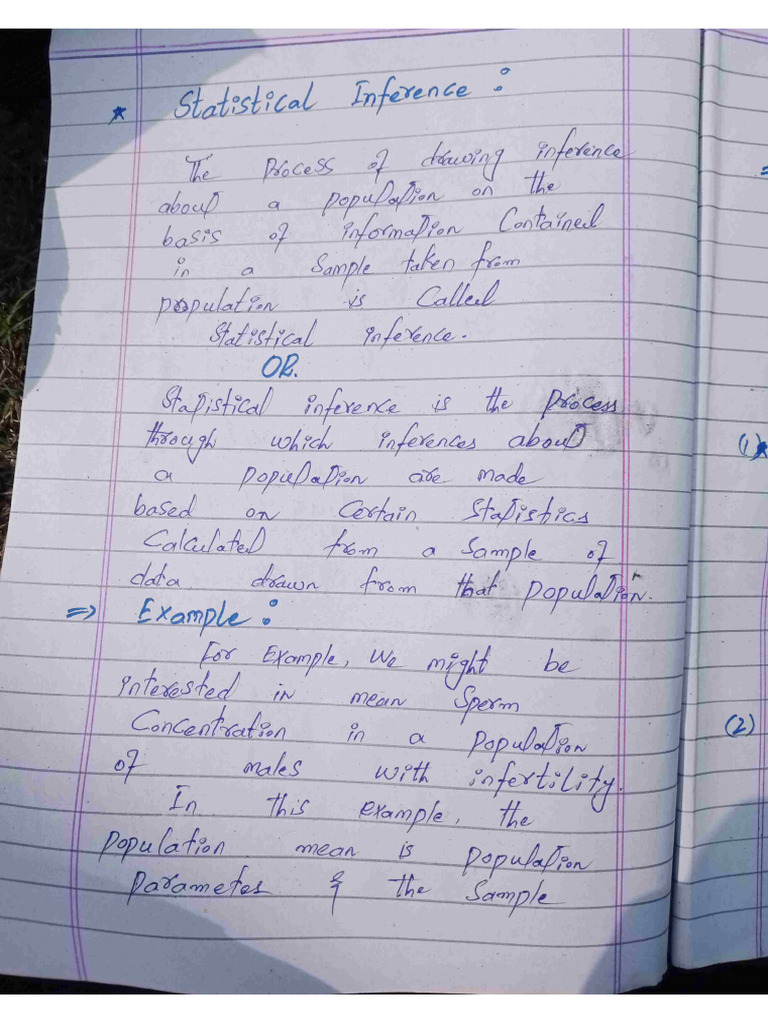 * Statistical Inference :
The Process of drawing inference
about a population on the
basis of information Contained
in a Sample taken from
population is Called
Statistical inference.
OR.
Statistical inference is the process
through which inferences about
a population are made
based on Certain Statistics
Calculated from a Sample of
data drawn from that population.
⇒ Example :
For Example, We might be
interested in mean Sperm
Concentration in a population
of males with infertility.
In this example, the
population mean is population
parametes & the Sample
(1)*
(2)